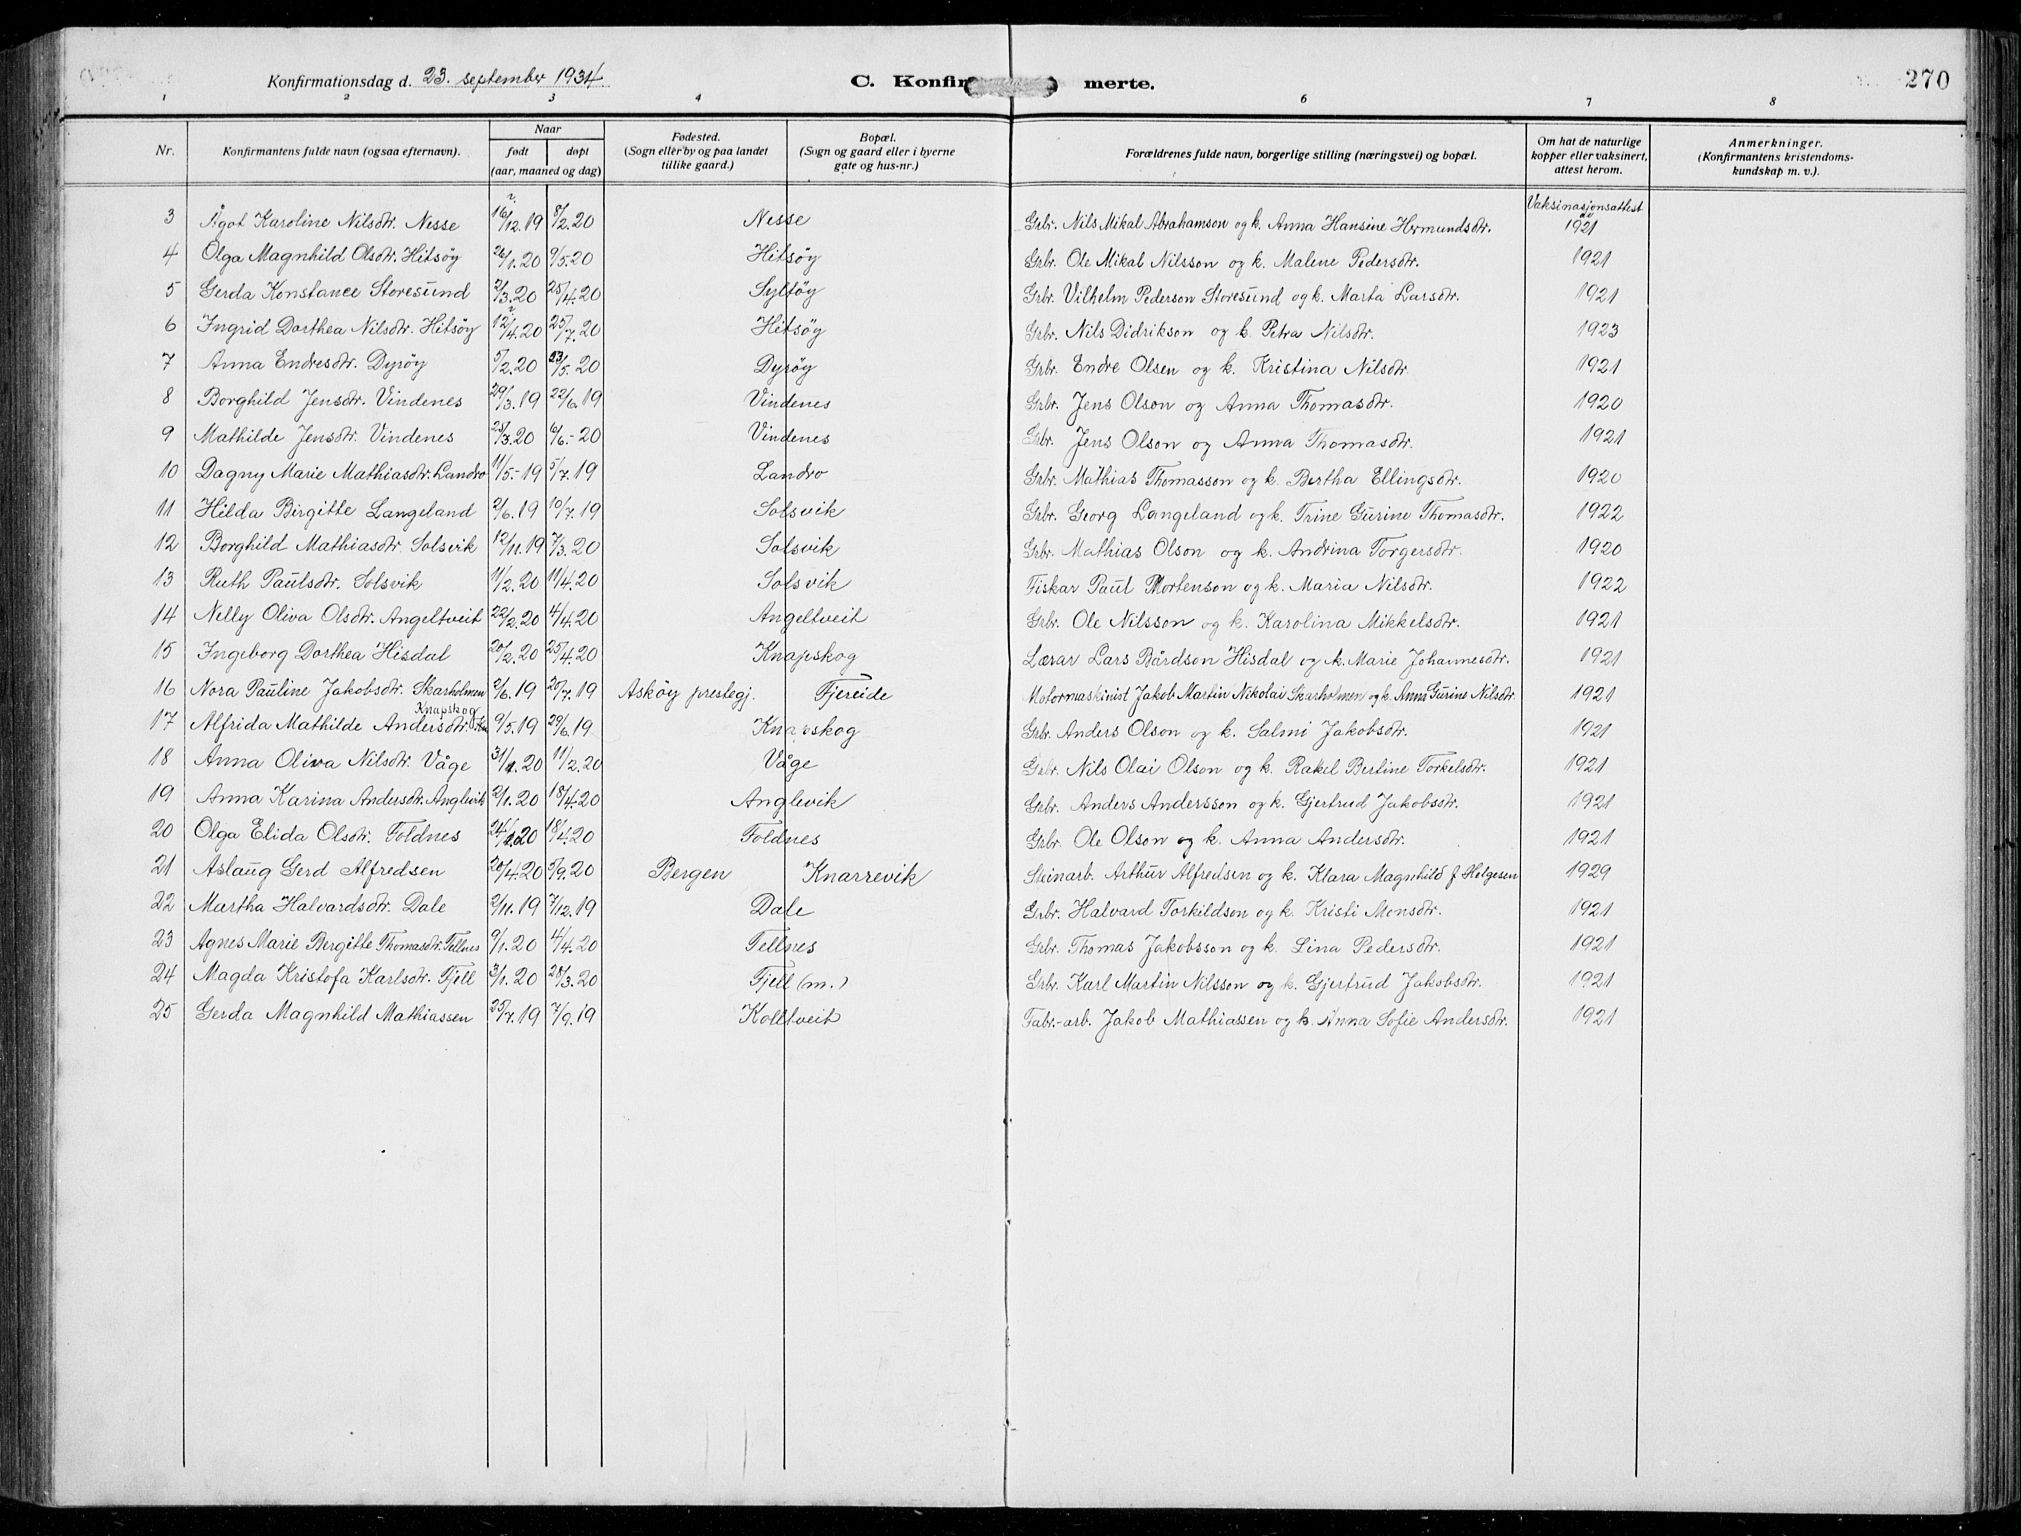 Konfirmationsdag d. 23. september 1934. C. Konfir merte. 270
1 2 3 4 6 7 8
Nr. Konfirmantens fulde navn (ogsaa efternavn). Naar født døpt (aar, maaned og dag) Fødested. (Sogn eller by og paa landet tillike gaard.) Bopæl. (Sogn og gaard eller i byerne gate og hus-nr.) Forældrenes fulde navn, borgerlige stilling (næringsvei) og bopæl. Om hat de naturlige kopper eller vaksinert, attest herom. Anmerkninger. (Konfirmantens kristendoms-kundskap m. v.).
Vaksinasjonsattest
3 Ågot Karoline Nilsdtr. Nesse 16/12.19 8/2.20 Nesse Grbr. Nils Mikal Abrahamson og k. Anna Hansine Hermundsdtr. 1921
4 Olga Magnhild Olsdtr. Hitsöy 26/1.20 9/5.20 Hitsöy Grbr. Ole Mikal Nilsson og k. Malene Pedersdtr. 1921
5 Gerda Konstance Storesund 2/3.20 25/4.20 Syltöy Grbr. Vilhelm Pederson Storesund og k. Marta Larsdtr. 1921
6 Ingrid Dorthea Nilsdtr. Hitsöy 12/4.20 25/7.20 Hitsöy Grbr. Nils Didrikson og k. Petra Nilsdtr. 1923
7 Anna Endresdtr. Dyröy 5/2.20 23/5.20 Dyröy Grbr. Endre Olsen og k. Kristina Nilsdtr. 1921
8 Borghild Jensdtr. Vindenes 29/3.19 22/6.19 Vindenes Grbr. Jens Olson og Anna Thomasdtr. 1920
9 Mathilde Jensdtr. Vindenes 25/3.20 6/6.-20 Vindenes Grbr. Jens Olson og Anna Thomasdtr. 1921
10 Dagny Marie Mathiasdtr. Landro 11/5.-19 5/7.19 Landro Grbr. Mathias Thomasson og k. Bertha Ellingsdtr. 1920
11 Hilda Birgitte Langeland 2/6.19 10/7.19 Solsvik Grbr. Georg Langeland og k. Trine Gurine Thomasdtr. 1922
12 Borghild Mathiasdtr. Solsvik 12/11.19 7/3.20 Solsvik Grbr. Mathias Olson og k. Andrina Torgersdtr. 1920
13 Ruth Paulsdtr. Solsvik 11/2.20 11/4.20 Solsvik Fiskar Paul Mortenson og k. Maria Nilsdtr. 1922
14 Nelly Oliva Olsdtr. Angeltveit 22/2.20 4/4.20 Angeltveit Grbr. Ole Nilsson og k. Karolina Mikkelsdtr. 1921
15 Ingeborg Dorthea Hisdal 20/2.20 25/4.20 Knapskog Lærar Lars Bårdson Hisdal og k. Marie Johannesdtr. 1921
16 Nora Pauline Jakobsdtr. Skarholmen 2/6.19 20/7.19 Asköy prestegj. Fjereide Motormaskinist Jakob Martin Nikolai Skarholmen og k. Anna Gurine Nilsdtr. 1921
Knapskog
17 Alfrida Mathilde Andersdtr. 9/5.19 29/6.19 Knapskog Grbr. Anders Olson og k. Salmi Jakobsdtr. 1921
18 Anna Oliva Nilsdtr. Våge 31/1.20 11/2.20 Våge Grbr. Nils Olai Olson og k. Rakel Bertine Torkelsdtr. 1921
19 Anna Karina Andersdtr. Anglevik 2/1.20 18/4.20 Anglevik Grbr. Anders Andersson og k. Gjertrud Jakobsdtr. 1921
20 Olga Elida Olsdtr. Foldnes 24/1.20 18/4.20 Foldnes Grbr. Ole Olson og k. Anna Andersdtr. 1921
21 Aslaug Gerd Alfredsen 20/4.20 5/9.20 Bergen Knarrevik Steinarb. Arthur Alfredsen og k. Klara Magnhild f Helgesen 1929
22 Martha Halvardsdtr. Dale 2/11.19 7/12.19 Dale Grbr. Halvard Torkildson og k. Kristi Monsdtr. 1921
23 Agnes Marie Bergitte Thomasdtr. Tellnes 9/1.20 4/4.20 Tellnes Grbr. Thomas Jakobsson og k. Lina Pedersdtr. 1921
24 Magda Kristofa Karlsdtr. Fjell 3/1.20 28/3.20 Fjell (m.) Grbr. Karl Martin Nilsson og k. Gjertrud Jakobsdtr. 1921
25 Gerda Magnhild Mathiassen 25/7.19 7/9.19 Kolltveit Fabr.-arb. Jakob Mathiassen og k. Anna Sofie Andersdtr. 1921